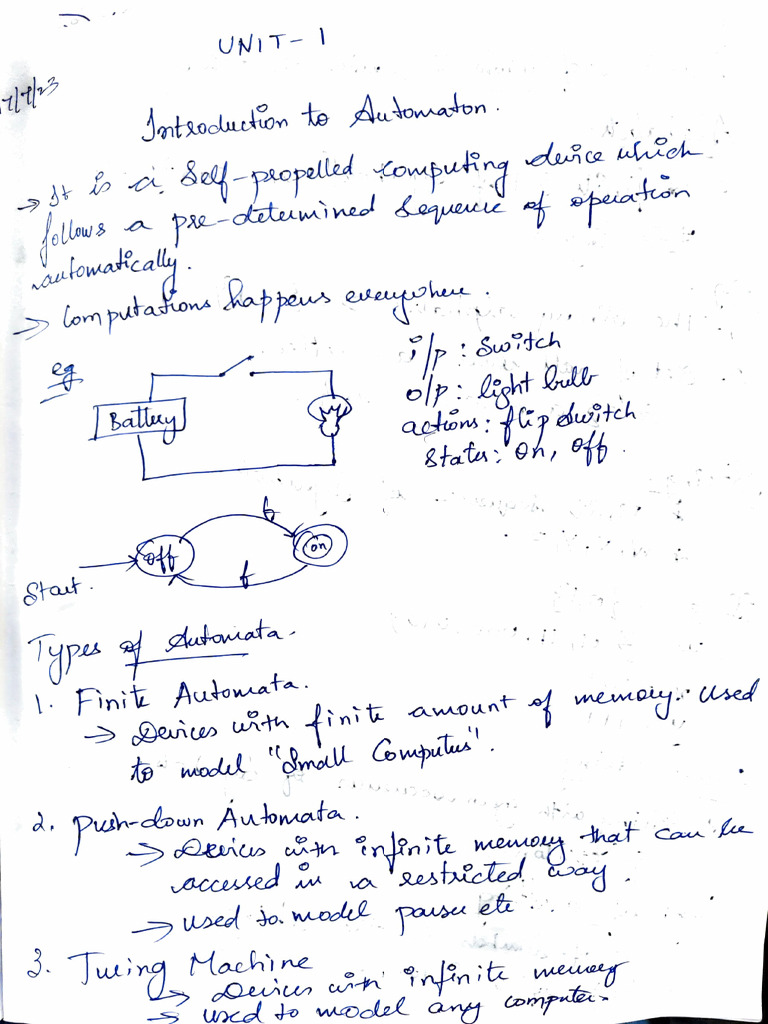 UNIT - 1
7/7/23
Introduction to Automaton.
→ It is a Self-propelled computing device which
follows a pre-determined sequence of operation
automatically.
→ Computations happens everywhere.
eg
i/p : Switch
o/p : light bulb
Battery
actions: flip switch
States: on, off.
f
off
on
f
Start.
Types of Automata.
1. Finite Automata.
→ Devices with finite amount of memory. Used
to model "Small Computers".
2. Push-down Automata.
→ Devices with infinite memory that can be
accessed in a restricted way
→ used to model parser etc
3. Turing Machine
→ Devices with infinite memory
→ used to model any computer.